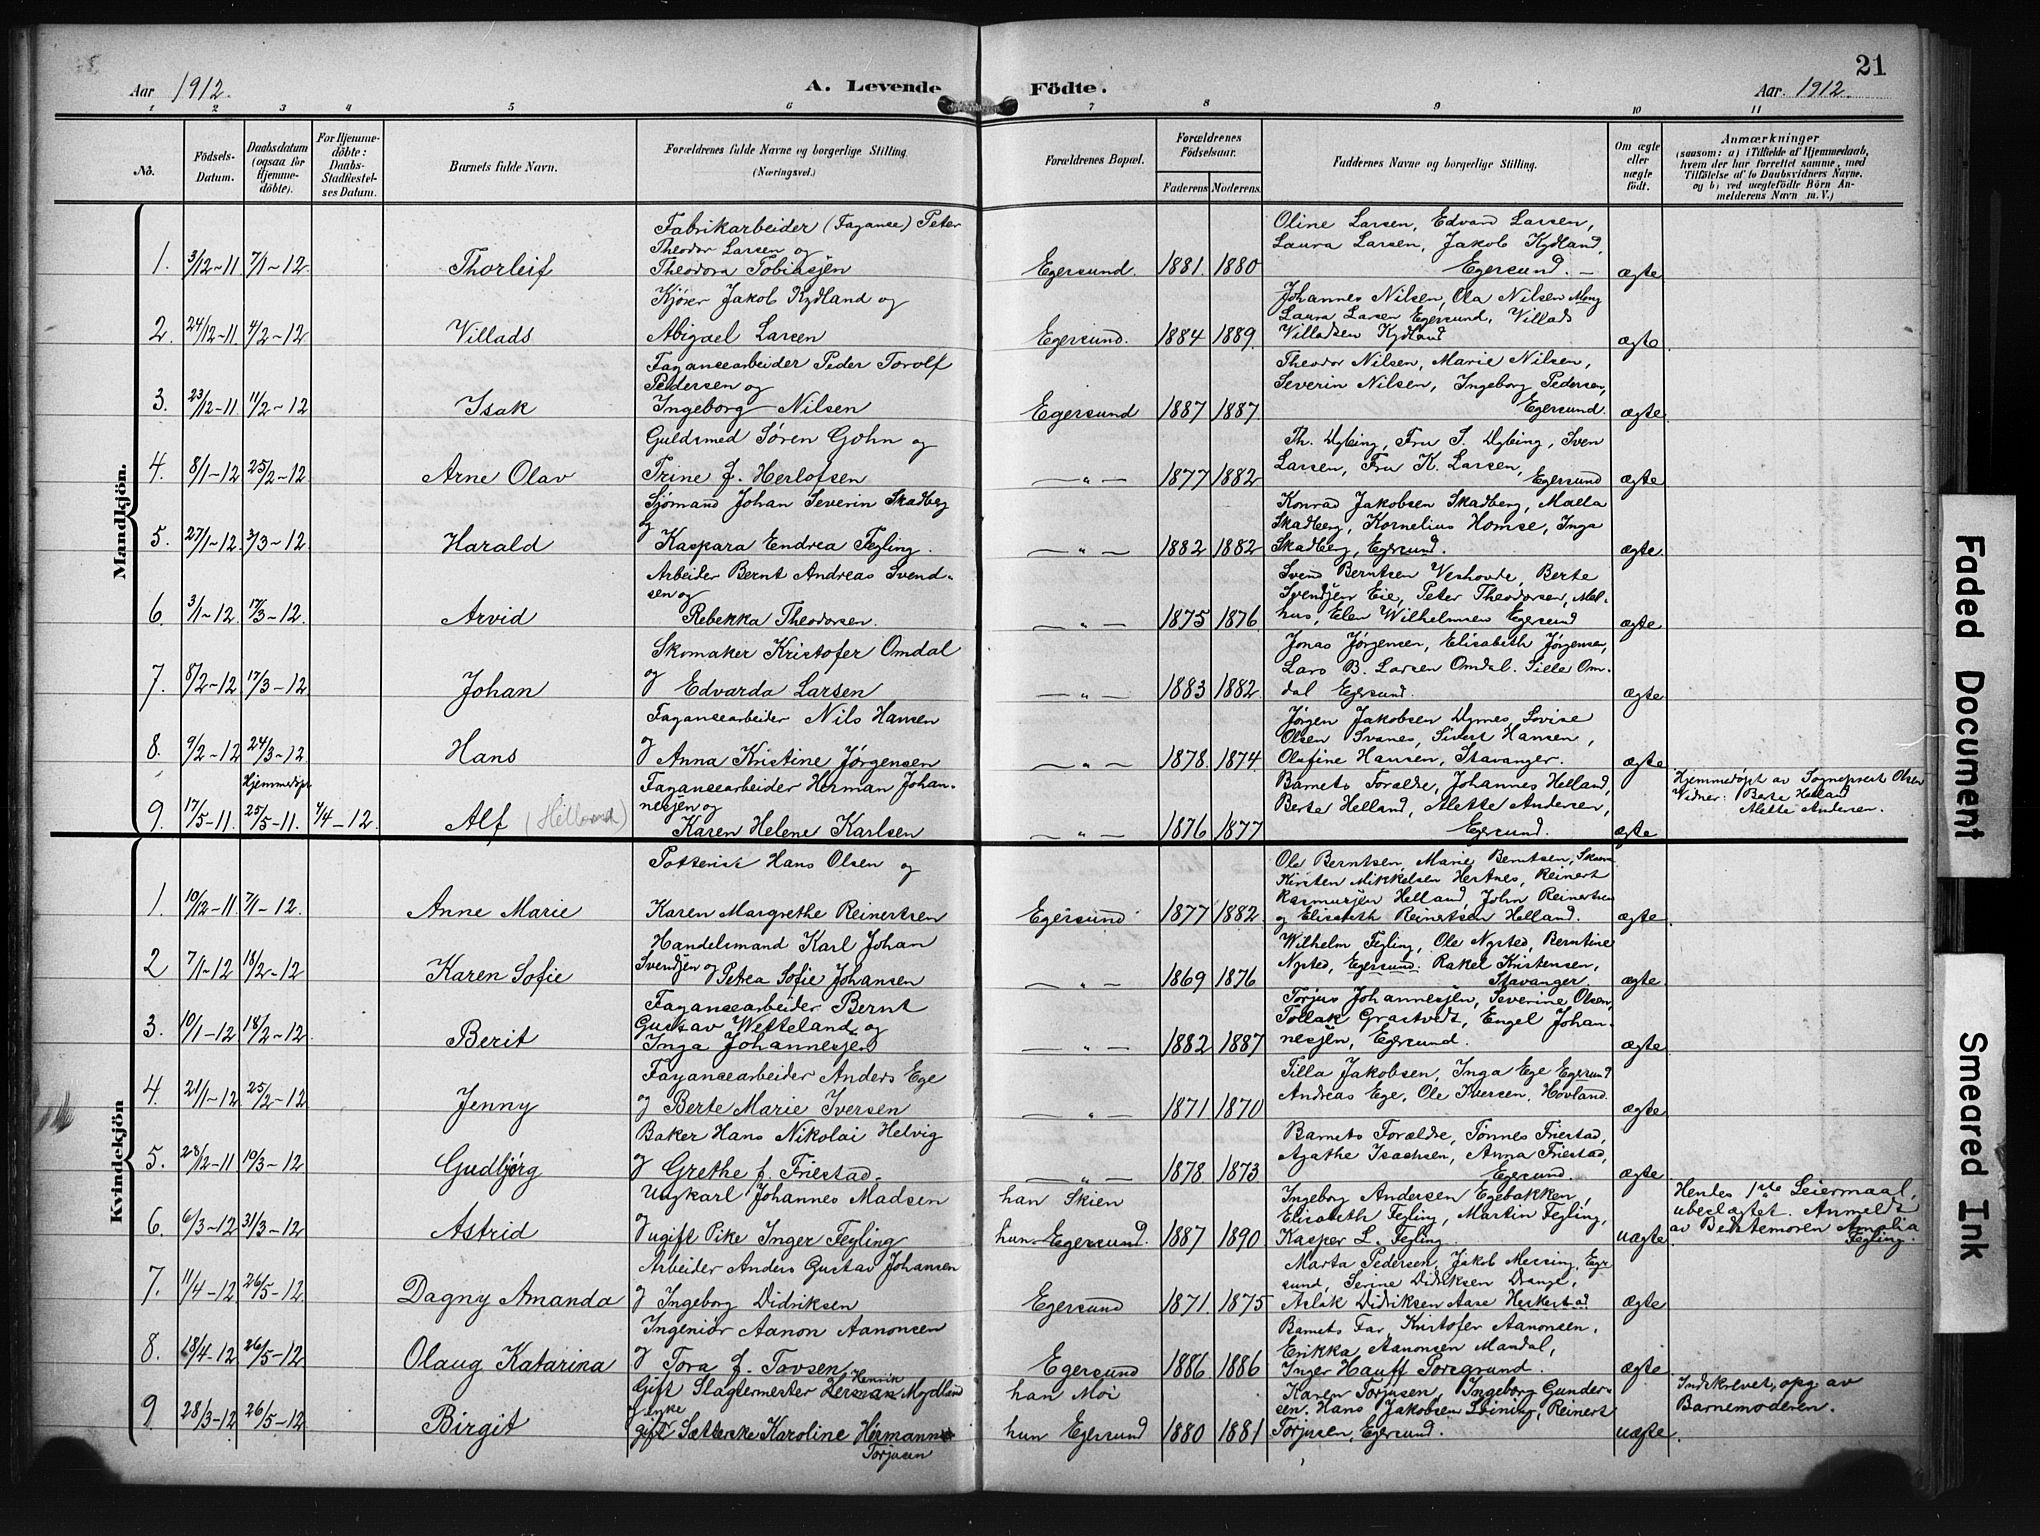 21
Aar 1912. A. Levende Födte. Aar. 1912.
1 2 3 4 5 6 7 8 9 10 11
No. Födsels-Datum. Daabsdatum (ogsaa for Hjemmedöbte). For Hjemmedöbte: Daabs-Stadfæstelses Datum. Barnets fulde Navn. Forældrenes fulde Navne og borgerlige Stilling. (Næringsvei.) Forældrenes Bopæl. Forældrenes Födselsaar. Faderens Moderens. Faddernes Navne og borgerlige Stilling. Om ægte eller uægte födt. Anmærkninger (saasom: a) i Tilfælde af Hjemmedaab, hvem der har forrettet samme, med Tilföielse af to Daabsvidners Navne. og b) ved uægtefödte Börn Anmelderens Navn m.V.)
Mandkjön.
Fabrikarbeider (Fayanse) Peter Oline Larsen, Edvard Larsen,
Theodor Larsen og Laura Larsen, Jakob Kydland,
1. 3/12-11 7/1-12. Thorleif Theodora Tobiasjen Egersund. 1881. 1880 Egersund. — ægte
Kjører Jakob Kydland og Johannes Nilsen, Ola Nilsen Mong
Laura Larsen Egersund, Villads
2. 24/12-11 4/2-12 Villads Abigael Larsen Egersund. 1884 1889. Villadsen Kydland ægte
Fayancearbeider Peder Torolf Theodor Nilsen, Marie Nilsen,
Pedersen og Severin Nilsen, Ingeborg Pedersen,
3. 23/12-11 11/2-12 Isak Ingeborg Nilsen Egersund 1887 1887. Egersund. ægte
Guldsmed Søren Gohn og Th. Dybing, Fru S. Dybing, Sven
4. 8/1-12 25/2-12 Arne Olav Trine f. Herlofsen — " — 1877 1882 Larsen, Fru K. Larsen, Egersund ægte
Sjømand Johan Severin Skadberg Konrad Jakobsen Skadberg, Malla
og Skadberg, Kornelius Homse, Inga
5. 27/1-12 3/3-12 Harald Kaspara Endrea Fegling. — " — 1882 1882 Skadberg, Egersund. ægte
Arbeider Bernt Andreas Svend- Svend Berntsen Veshovde, Berte
sen og Svendsjen Eie, Peter Theodorsen, Mel-
6 3/1-12 17/3-12 Arvid Rebekka Theodorsen. — " — 1875 1876 hus, Elen Wilhelmsen Egersund ægte
Skomaker Kristofer Omdal Jonas Jørgensen, Elisabeth Jørgensen,
Lars B. Larsen Omdal. Sille Om-
7. 8/2-12 17/3-12 Johan og Edvarda Larsen — " — 1883 1882. dal Egersund. ægte
Fayancearbeider Nils Hansen Jørgen Jakobsen Dymes, Lovise
Olsen Svanes, Sivert Hansen,
8. 9/2-12 24/3-12 Hans og Anna Kristine Jørgensen — " — 1878. 1874. Olafine Hansen, Stavanger. ægte
Hjemmedøpt Fayancearbeider Herman Johan- Barnets Forældre, Johannes Helland, Hjemmedøpt av Sogneprest Olsen
nesjen og Berte Helland, Alette Andersen, Vidner: Berte Helland
9. 17/5-11. 25/5-11. 4/4-12. Alf (Helland) Karen Helene Karlsen — " — 1876 1877 Egersund. ægte Alette Andersen.
Kvindekjön
Pottemr Hans Olsen og Ole Berntsen, Marie Berntsen,
Kirsten Mikkelsen Hestnes, Reinert
Rasmusjen Helland, John Reinertsen
1. 10/12-11 7/1-12. Anne Marie Karen Margrethe Reinertsen Egersund 1877 1882. og Elisabeth Reinertsen Helland. ægte
Handelsmand Karl Johan Wilhelm Fegling, Ole Nysted, Berntine
Nysted, Egersund. Rakel Kristensen,
2 7/1-12 18/2-12 Karen Sofie Svendsjen og Petrea Sofie Johansen — " — 1869 1876 Stavanger. ægte
Fayancearbeider Bernt Torjus Johannesjen, Severine Olsen,
Gustav Wetteland og Tollak Grastvedt, Engel Johan-
3. 10/1-12 18/2-12. Berit Inga Johannesjen — " — 1882 1887 nesjen, Egersund. ægte
Fayancearbeider Anders Ege Tilla Jakobsen, Inga Ege Egersund
4. 21/1-12 25/2-12 Jenny og Berte Marie Iversen — " — 1871 1870 Andreas Ege, Ole Iversen, Hovland. ægte
Baker Hans Nikolai Helvig Barnets Forældre, Tønnes Friestad,
Agathe Isachsen, Anna Friestad,
5. 28/12-11 10/3-12 Gudbjørg og Grethe f. Friestad. — " — 1878 1873 Egersund. ægte
Ungkarl Johannes Madsen han Skien Ingeborg Andersen Egebakken, Hentes 1ste Leiermaal,
og Elisabeth Fegling, Martin Fegling, ubeslægtet. Anmeldt
6. 6/3-12 31/3-12 Astrid ugift Pike Inger Fegling hun Egersund. 1887 1890 Kasper L. Fegling. uægte. av Bedstemoren Amalia Fegling.
Arbeider Anders Gustav Johansen Marta Pedersen, Jakob Messing, Eger-
sund, Serine Didriksen Drange,
7. 11/4-12 26/5-12. Dagny Amanda og Ingeborg Didriksen Egersund 1871 1875 Aslak Didriksen Aase Herkestad ægte
Ingeniør Aanon Aanonsen Barnets Far, Kristofer Aanonsen,
Erikka Aanonsen Mandal,
8. 18/4-12 26/5-12 Olaug Katarina og Tora f. Tovsen Egersund 1886 1886 Inger Hauff Porsgrund. ægte
Henrik
Gift Slagtermester Herman Mydland han Moi Karen Torjusen, Ingeborg Gunder- Indskrevet, opg. av
sen. Hans Jakobsen Leining, Reinert Barnemoderen.
9 28/3-12 26/5-12 Birgit gift Sætterske Karoline Hermanne hun Egersund 1880 1881 Torjusen, Egersund. uægte.
Torjusen
Faded Document
Smeared Ink